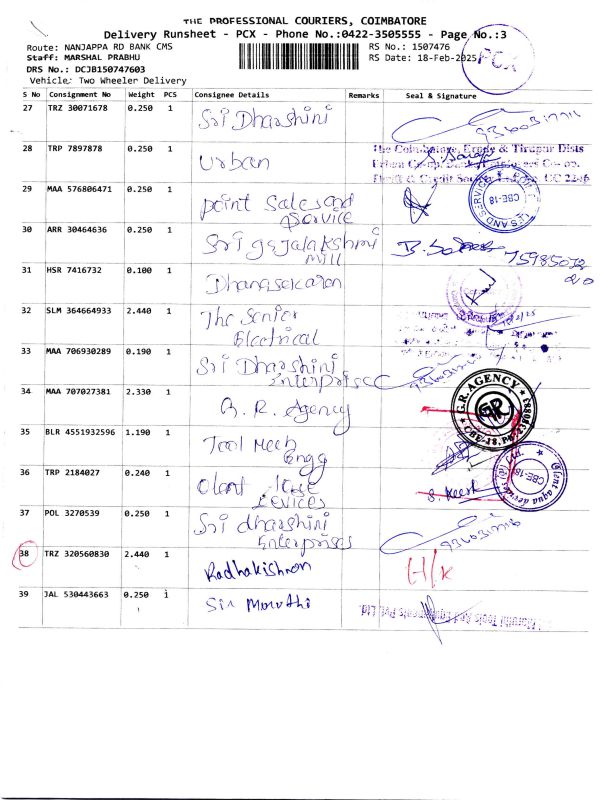 THE PROFESSIONAL COURIERS, COIMBATORE
Delivery Runsheet - PCX - Phone No.:0422-3505555 - Page No.:3
Route: NANJAPPA RD BANK CMS
RS No.: 1507476
Staff: MARSHAL PRABHU
RS Date: 18-Feb-2025
PCX
DRS No.: DCJB150747603
Vehicle: Two Wheeler Delivery
S No Consignment No Weight PCS Consignee Details Remarks Seal & Signature
27 TRZ 30071678 0.250 1 Sri Dharshini
28 TRP 7897878 0.250 1 Urban
The Coimbatore, Erode & Tirupur Dists
29 MAA 576806471 0.250 1 point Sales and
Service
CBE-18
30 ARR 30464636 0.250 1 Sri gajalakshmi
mill
31 HSR 7416732 0.100 1 Dhanasekaran
32 SLM 364664933 2.440 1 The Senior
Electrical
33 MAA 706930289 0.190 1 Sri Dharshini
Enterprises
34 MAA 707027381 2.330 1 G. R. Agency
G.R. AGENCY
GR
35 BLR 4551932596 1.190 1 Tool Mech
Engg
36 TRP 2184027 0.240 1 Olant
Devices
CBE-18
37 POL 3270539 0.250 1 Sri dharshini
Enterprises
38 TRZ 320560830 2.440 1 Radhakishnan
39 JAL 530443663 0.250 1 Sir Maruthi